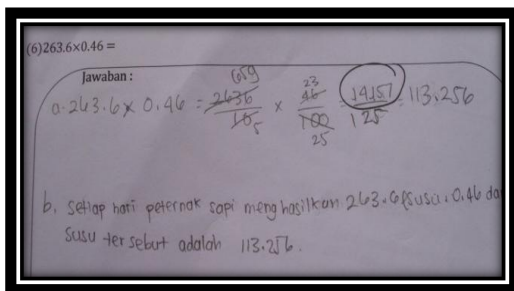 (6)263.6×0.46 =
Jawaban :
a. 263.6 × 0.46 = 2636/10 × 46/100 = 14157/125 = 113.256
659 23
5 25
b. Setiap hari peternak sapi menghasilkan 263.6 l susu. 0.46 da
susu tersebut adalah 113.256.